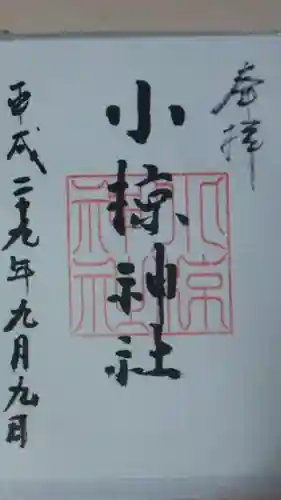 奉拝
小椋神社
小椋神社
平成二十九年九月九日